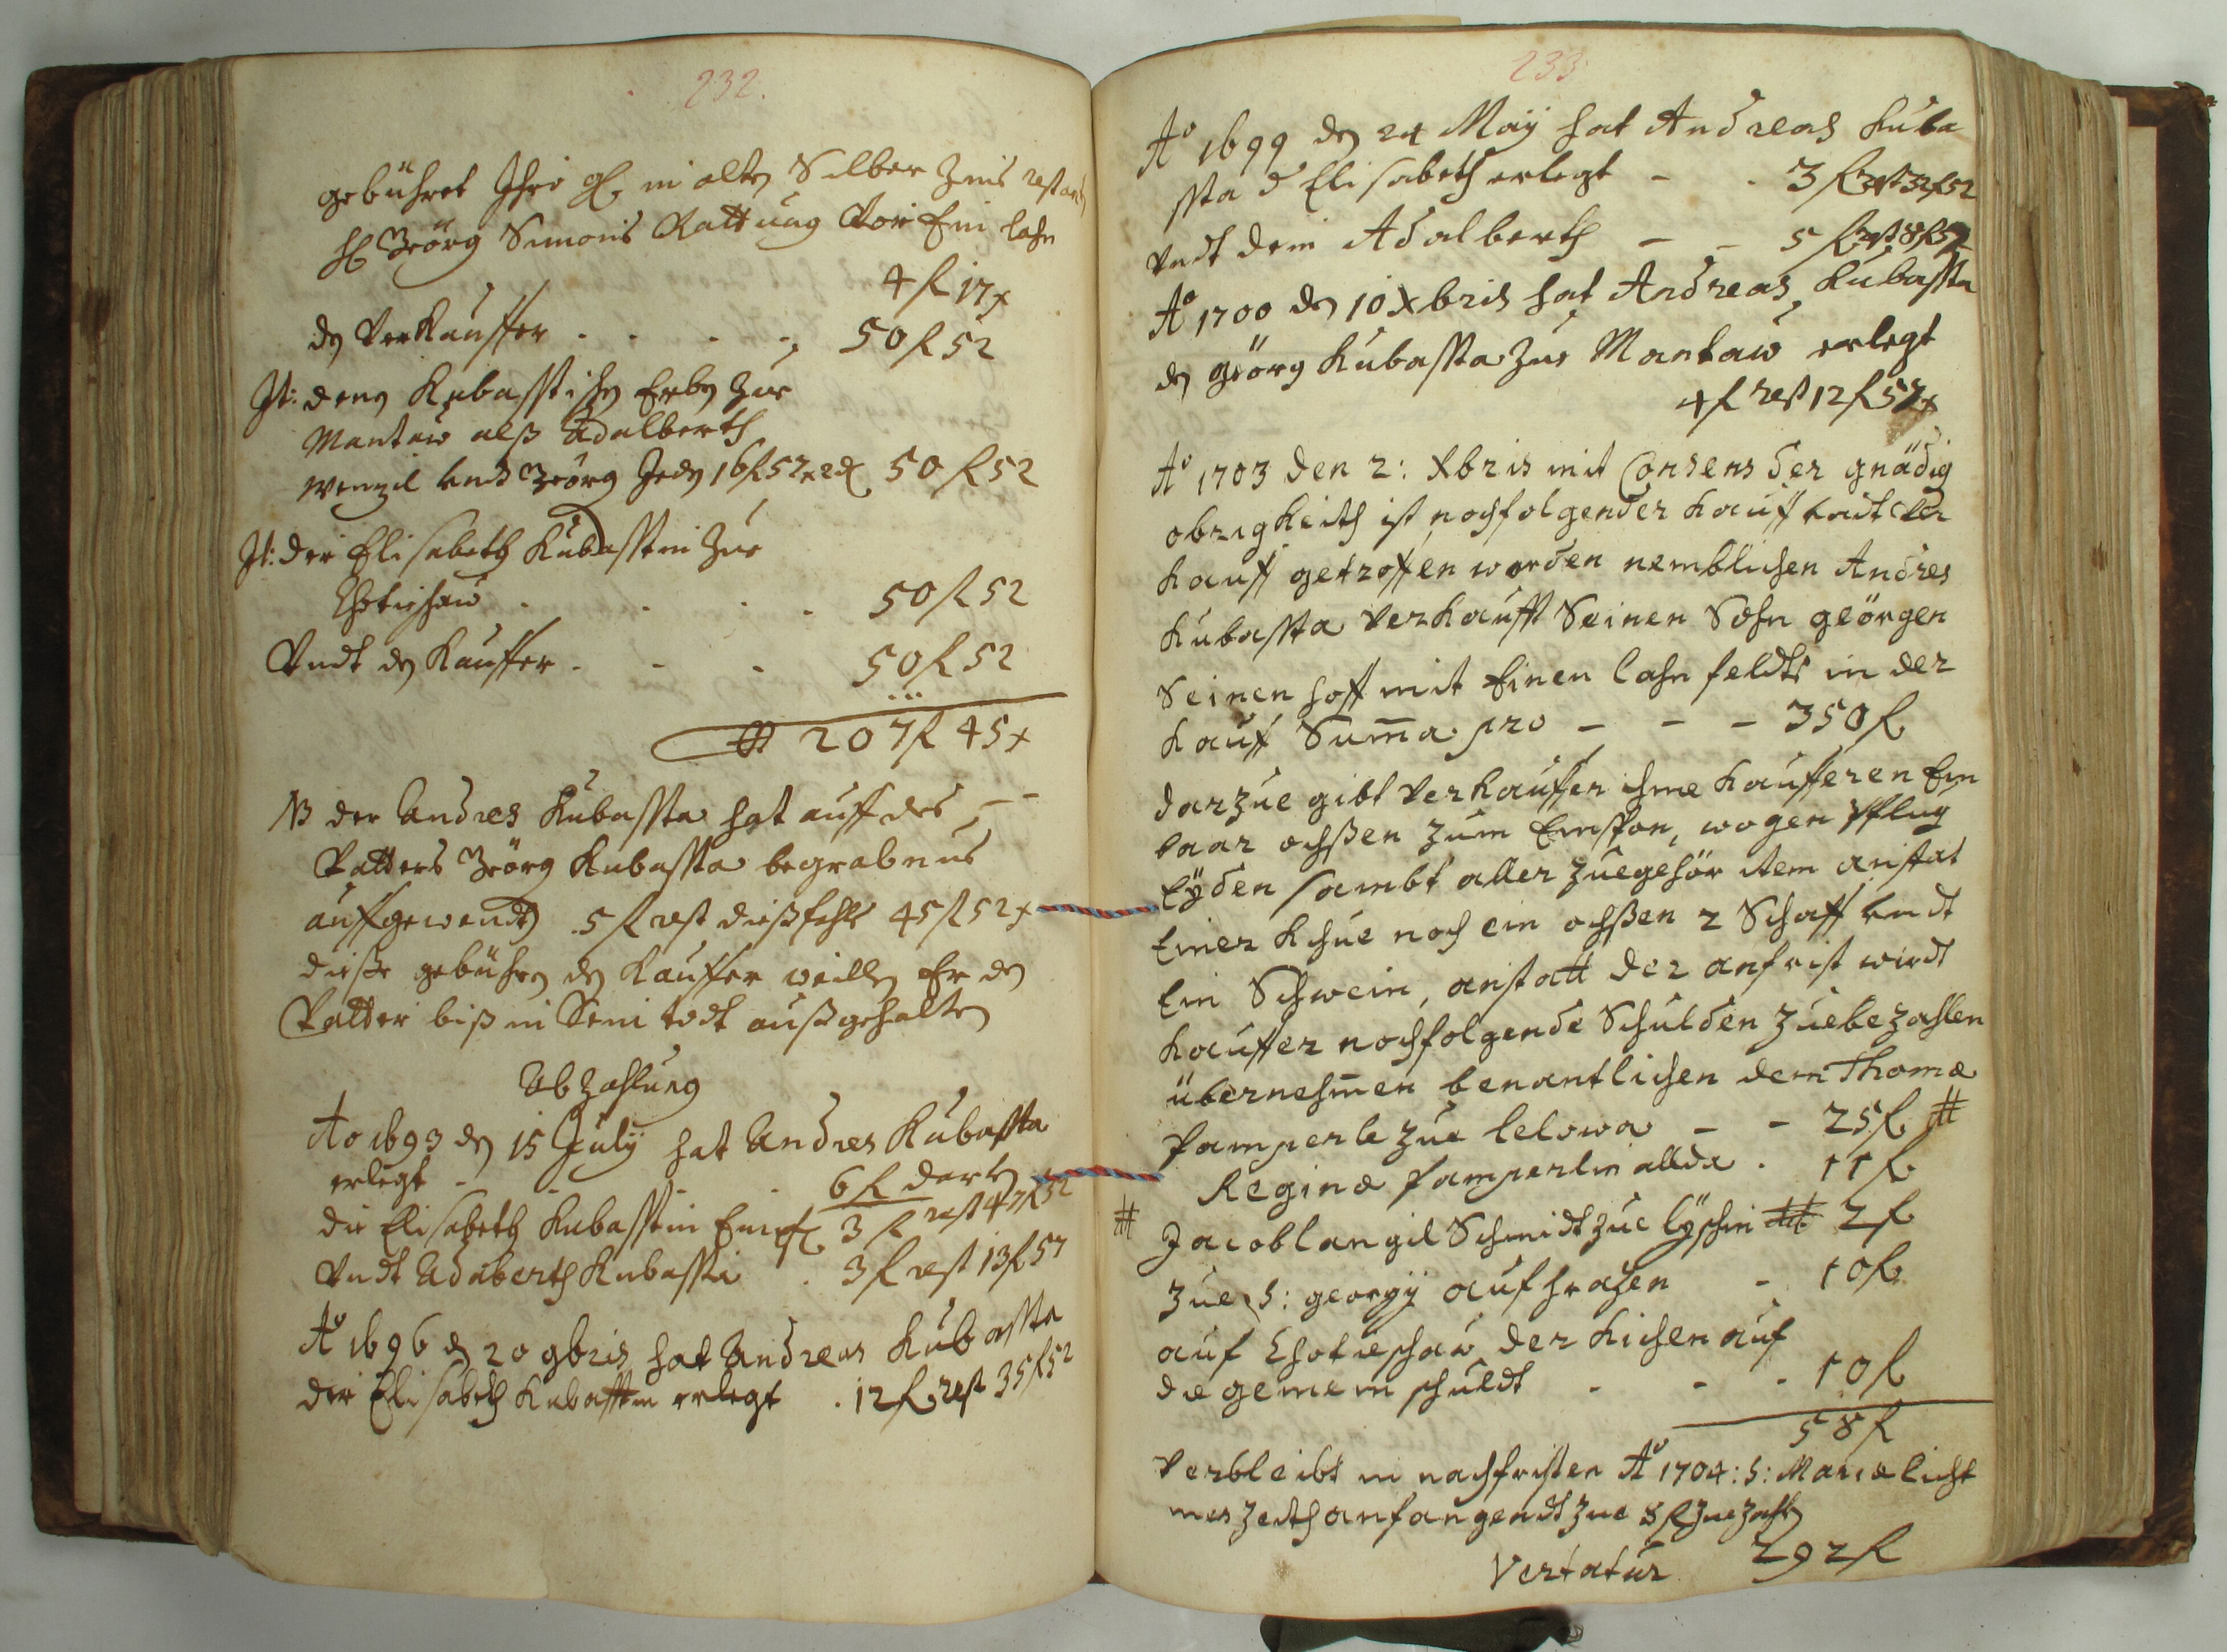 232.
gebühret Ihro g. in alten Silber Zins restant
H Geörg Simonis Rattung Vor Ein lahn
4 fl 17 x
den Verkauffer . . . . 50 fl 52
It: denen Kubasstischen Erben Zue
Mantaw alß Adalberth
Wenzil undt Geörg Jeden 16 fl 57 x 2 d 50 fl 52
It: der Elisabeth Kubasstin Zue
Chotischaw . . . . 50 fl 52
Undt den Kauffer . - - 50 fl 52
207 fl 45 x
NB der Andres Kubassta hat auff des
Vatters Geörg Kubassta begrabnus
auffgewendt 5 fl rest dießfahls 45 fl 52 x
dieße gebühren den Kauffer weillen Er den
Vatter biß in Sein todt außgehalten
Abzahlung
Ao 1693 den 15 July hat Andres Kubassta
erlegt - - - 6 fl
die Elisabeth Kubasstin 3 fl rest 47 fl 52
Undt Adaberth Kubassta . 3 fl rest 13 fl 57
Ao 1696 d 20 9bris hat Andreas Kubassta
der Elisabeth Kubasstin erlegt . 12 fl rest 35 fl 52
233
Ao 1699 den 24 Maÿ hat Andreas Kuba
ssta d Elisabeth erlegt - . 3 fl rest 32 fl 52
Vndt dem Adalberth - - 5 fl rest 8 fl 57
Ao 1700 den 10 Xbris hat Andreas Kubassta
den geörg Kubassta Zue Mantaw erlegt
4 fl rest 12 fl 57 x
Ao 1703 den 2: Xbris mit Consens der gnädig
obrigkeith ist nochfolgender Kauff Undt Ver
Kauff getroffen worden nemblichen Andres
Kubassta Verkaufft Seinen Sohn geörgen
Seinen hoff mit Einen lahn feldts in der
Kauff Summa pro - - - 350 fl
darzue gibt Verkauffer ihme Kaufferen Ein
baar ochßen zum Einspon, wogen Pflug
Eÿden sambt aller zuegehör item anstat
Einer Khue noch ein ochßen 2 Schaff Undt
Ein Schwein, anstatt der anfrist wirdt
Kauffer nochfolgende Schulden zuebezahlen
übernehmen benantlichen dem Thomæ
Pamperle zue lelowa - - 25 fl #
Reginæ Pamperlin allda . 11 fl
# Jacob langil Schmidt zue lÿschin 2 fl
Zue S: georgÿ auf hrahen - 10 fl
auf Chotieschaw der Kichen auf
die gemein schuldt - - . 10 fl
58 fl
Verbleibt in nachfristen Ao 1704: S: Mariæ licht
mes Zeith anfangendt zue 8 fl zuezahlen
292 fl
Vertatur